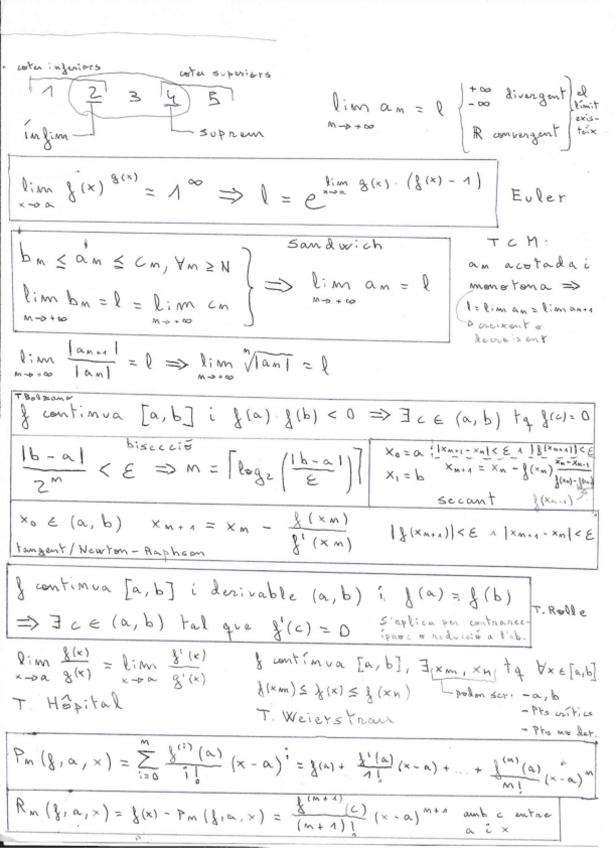 cotes inferiors cotes superiors
1 2 3 4 5
ínfim suprem
lim aₙ = l { +∞ -∞ divergent ℝ convergent } el límit existeix
n→+∞
lim f(x)^g(x) = 1^∞ ⇒ l = e^(lim x→a g(x)·(f(x)-1)) Euler
x→a
sandwich
bₙ ≤ aₙ ≤ cₙ, ∀n ≥ N
lim bₙ = l = lim cₙ ⇒ lim aₙ = l
n→+∞ n→+∞ n→+∞
TCM:
aₙ acotada i
monotona ⇒
l = lim aₙ = lim aₙ₊₁
creixent o
decreixent
lim |aₙ₊₁|/|aₙ| = l ⇒ lim ⁿ√|aₙ| = l
n→+∞ n→+∞
T Bolzano
f contínua [a,b] i f(a)·f(b) < 0 ⇒ ∃c ∈ (a,b) tq f(c)=0
bisecció
|b-a|/2ⁿ < ε ⇒ n = ⌈log₂(|b-a|/ε)⌉
x₀=a i |xₙ₊₁-xₙ|<ε ∧ |f(xₙ₊₁)|<ε
x₁=b xₙ₊₁ = xₙ - f(xₙ) (xₙ-xₙ₋₁)/(f(xₙ)-f(xₙ₋₁))
secant f(xₙ₋₁)
x₀ ∈ (a,b) xₙ₊₁ = xₙ - f(xₙ)/f'(xₙ) |f(xₙ₊₁)|<ε ∧ |xₙ₊₁-xₙ|<ε
tangent/Newton-Raphson
f contínua [a,b] i derivable (a,b) i f(a) = f(b)
⇒ ∃c ∈ (a,b) tal que f'(c) = 0
S'aplica per contrarecíproc o reducció a l'ab.
T. Rolle
lim f(x)/g(x) = lim f'(x)/g'(x)
x→a x→a
T. Hôpital
f contínua [a,b], ∃ xₘ, xₙ tq ∀x∈[a,b]
f(xₘ) ≤ f(x) ≤ f(xₙ)
poden ser: -a,b
- Pts crítics
- Pts no der.
T. Weierstrass
Pₙ(f,a,x) = ∑ⁿᵢ₌₀ f⁽ⁱ⁾(a)/i! (x-a)ⁱ = f(a) + f'(a)/1! (x-a) + ... + f⁽ⁿ⁾(a)/n! (x-a)ⁿ
Rₙ(f,a,x) = f(x) - Pₙ(f,a,x) = f⁽ⁿ⁺¹⁾(c)/(n+1)! (x-a)ⁿ⁺¹ amb c entre
a i x